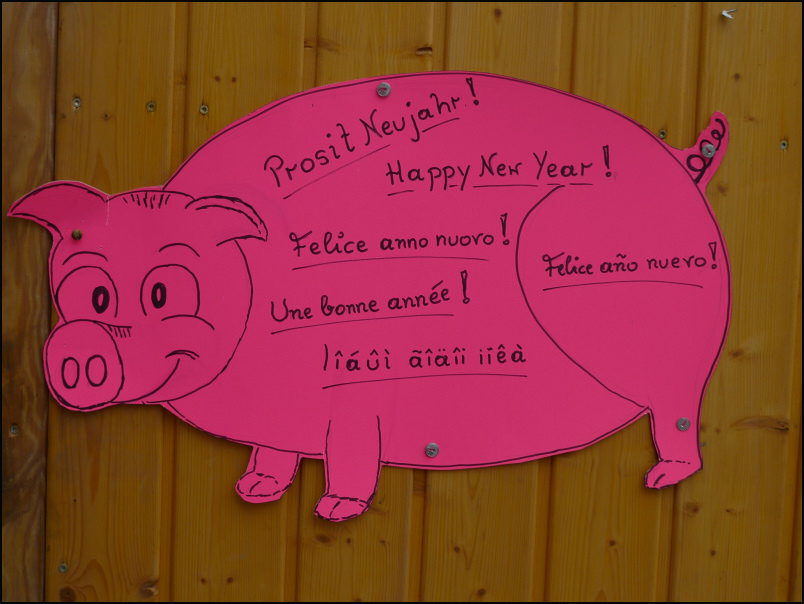 Prosit Neujahr!
Happy New Year!
Felice anno nuovo!
Felice año nuevo!
Une bonne année!
Iîáûì